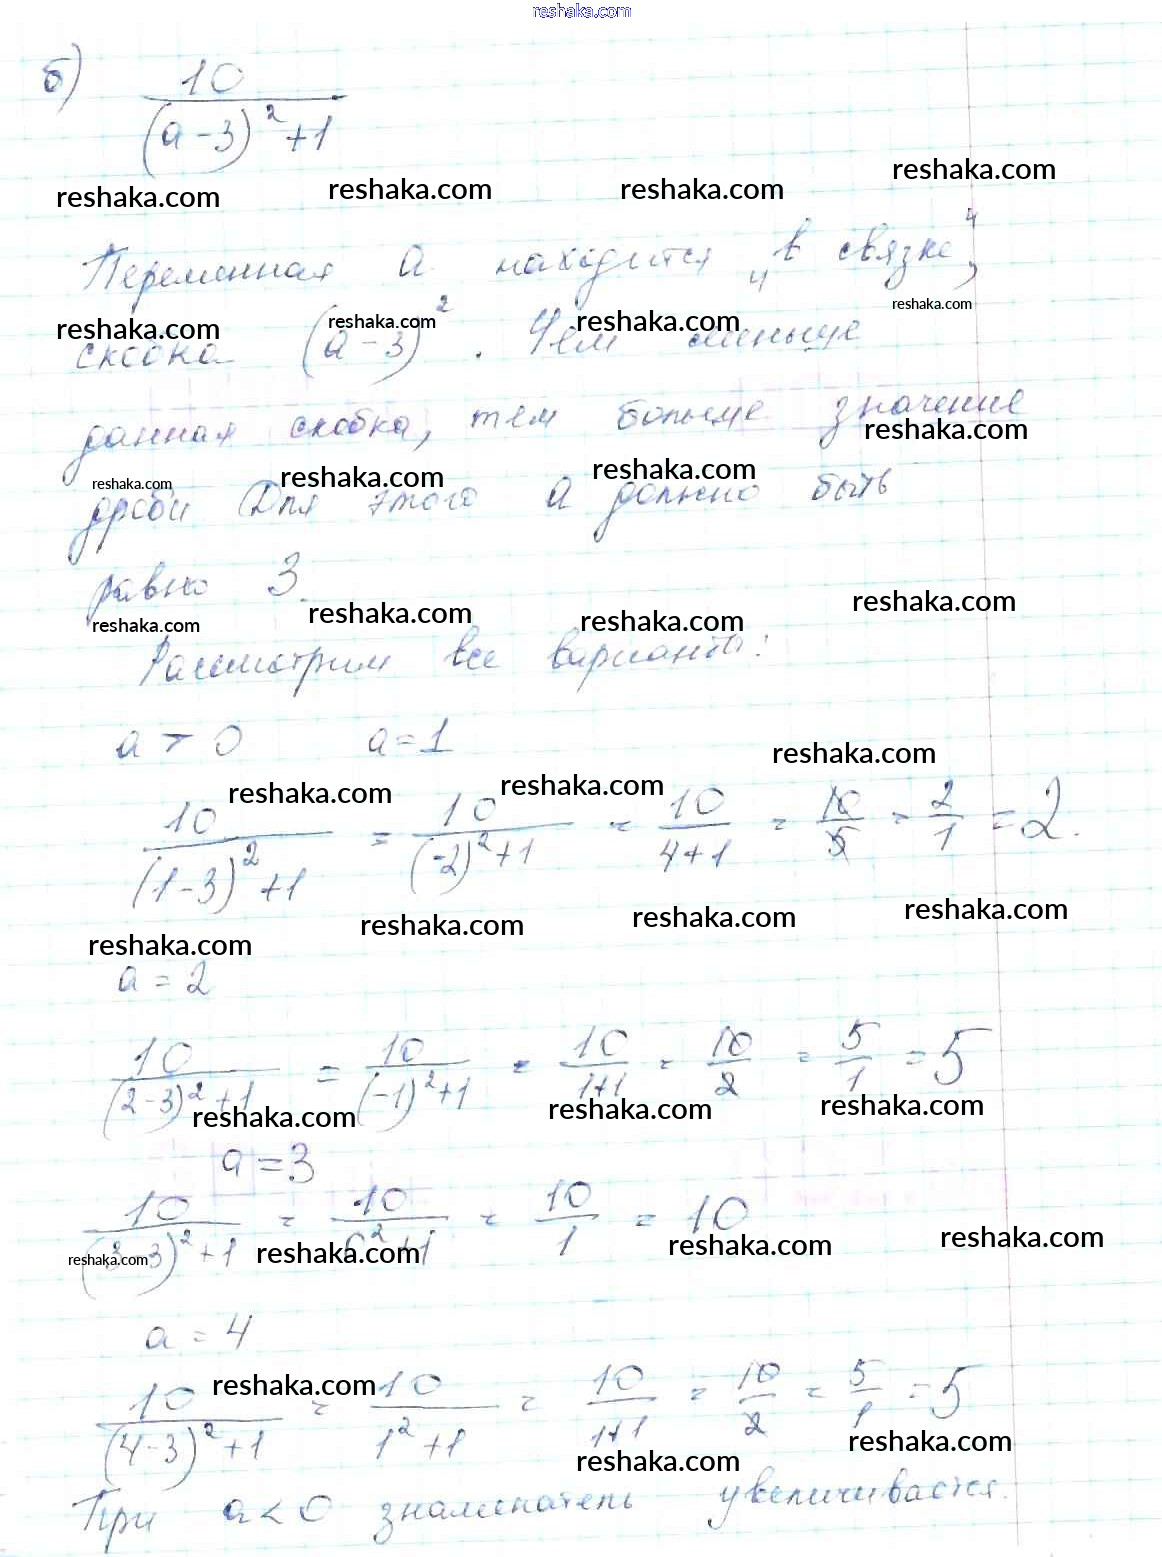 reshaka.com
б) 10
(a-3)² +1
reshaka.com reshaka.com reshaka.com reshaka.com
Переменная a находится в „связке“,
reshaka.com reshaka.com reshaka.com reshaka.com
скобка (a-3)². Чем меньше
данная скобка, тем больше значение
reshaka.com
reshaka.com reshaka.com reshaka.com
дроби Для этого a должно быть
равно 3.
reshaka.com reshaka.com reshaka.com reshaka.com
Рассмотрим все варианты:
a > 0 a=1
reshaka.com reshaka.com reshaka.com
10/((1-3)²+1) = 10/((-2)²+1) = 10/(4+1) = 10/5 = 2/1 = 2.
reshaka.com reshaka.com reshaka.com reshaka.com
a = 2
10/((2-3)²+1) = 10/((-1)²+1) = 10/(1+1) = 10/2 = 5/1 = 5
reshaka.com reshaka.com reshaka.com
a=3
10/((3-3)²+1) = 10/(0²+1) = 10/1 = 10
reshaka.com reshaka.com reshaka.com reshaka.com
a = 4
reshaka.com
10/((4-3)²+1) = 10/(1²+1) = 10/(1+1) = 10/2 = 5/1 = 5
reshaka.com reshaka.com
При a<0 знаменатель увеличивается.